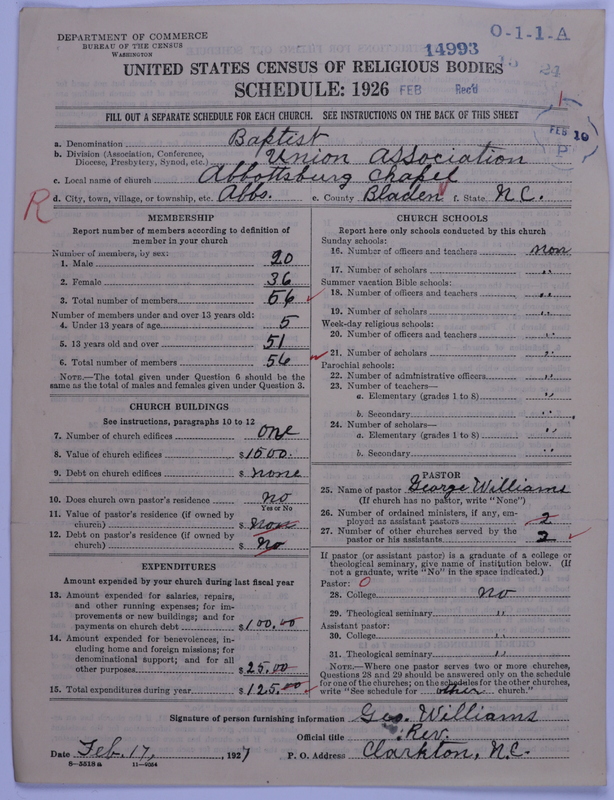 DEPARTMENT OF COMMERCE
BUREAU OF THE CENSUS
WASHINGTON
14993
O-1-1-A
UNITED STATES CENSUS OF RELIGIOUS BODIES
SCHEDULE: 1926
FEB Rec'd
FEB 10
P
FILL OUT A SEPARATE SCHEDULE FOR EACH CHURCH. SEE INSTRUCTIONS ON THE BACK OF THIS SHEET
a. Denomination Baptist
b. Division (Association, Conference, Diocese, Presbytery, Synod, etc.) Union Association
c. Local name of church Abbottsburg Chapel
R
d. City, town, village, or township, etc. Abbs. e. County Bladen f. State N.C.
MEMBERSHIP
Report number of members according to definition of
member in your church
Number of members, by sex:
1. Male 20
2. Female 36
3. Total number of members 56
Number of members under and over 13 years old:
4. Under 13 years of age 5
5. 13 years old and over 51
6. Total number of members 56
NOTE.—The total given under Question 6 should be the
same as the total of males and females given under Question 3.
CHURCH BUILDINGS
See instructions, paragraphs 10 to 12
7. Number of church edifices one
8. Value of church edifices $1000.
9. Debt on church edifices $ none
10. Does church own pastor's residence no
Yes or No
11. Value of pastor's residence (if owned by
church) $
12. Debt on pastor's residence (if owned by
church) $ no
EXPENDITURES
Amount expended by your church during last fiscal year
13. Amount expended for salaries, repairs,
and other running expenses; for im-
provements or new buildings; and for
payments on church debt $100.00
14. Amount expended for benevolences, in-
cluding home and foreign missions; for
denominational support; and for all
other purposes $25.00
15. Total expenditures during year $125.00
CHURCH SCHOOLS
Report here only schools conducted by this church
Sunday schools:
16. Number of officers and teachers non
17. Number of scholars "
Summer vacation Bible schools:
18. Number of officers and teachers "
19. Number of scholars "
Week-day religious schools:
20. Number of officers and teachers "
21. Number of scholars "
Parochial schools:
22. Number of administrative officers "
23. Number of teachers—
a. Elementary (grades 1 to 8) "
b. Secondary "
24. Number of scholars—
a. Elementary (grades 1 to 8) "
b. Secondary "
PASTOR
25. Name of pastor George Williams
(If church has no pastor, write "None")
26. Number of ordained ministers, if any, em-
ployed as assistant pastors 2
27. Number of other churches served by the
pastor or his assistants 2
If pastor (or assistant pastor) is a graduate of a college or
theological seminary, give name of institution below. (If
not a graduate, write "No" in the space indicated.)
Pastor: O
28. College no
29. Theological seminary "
Assistant pastor:
30. College "
31. Theological seminary "
NOTE.—Where one pastor serves two or more churches,
Questions 28 and 29 should be answered only on the schedule
for one of the churches; on the schedules for the other churches,
write "See schedule for other church."
Signature of person furnishing information Geo. Williams
Official title Rev.
Date Feb. 17, 1927 P. O. Address Clarkton, N.C.
8-5518a 11-9054